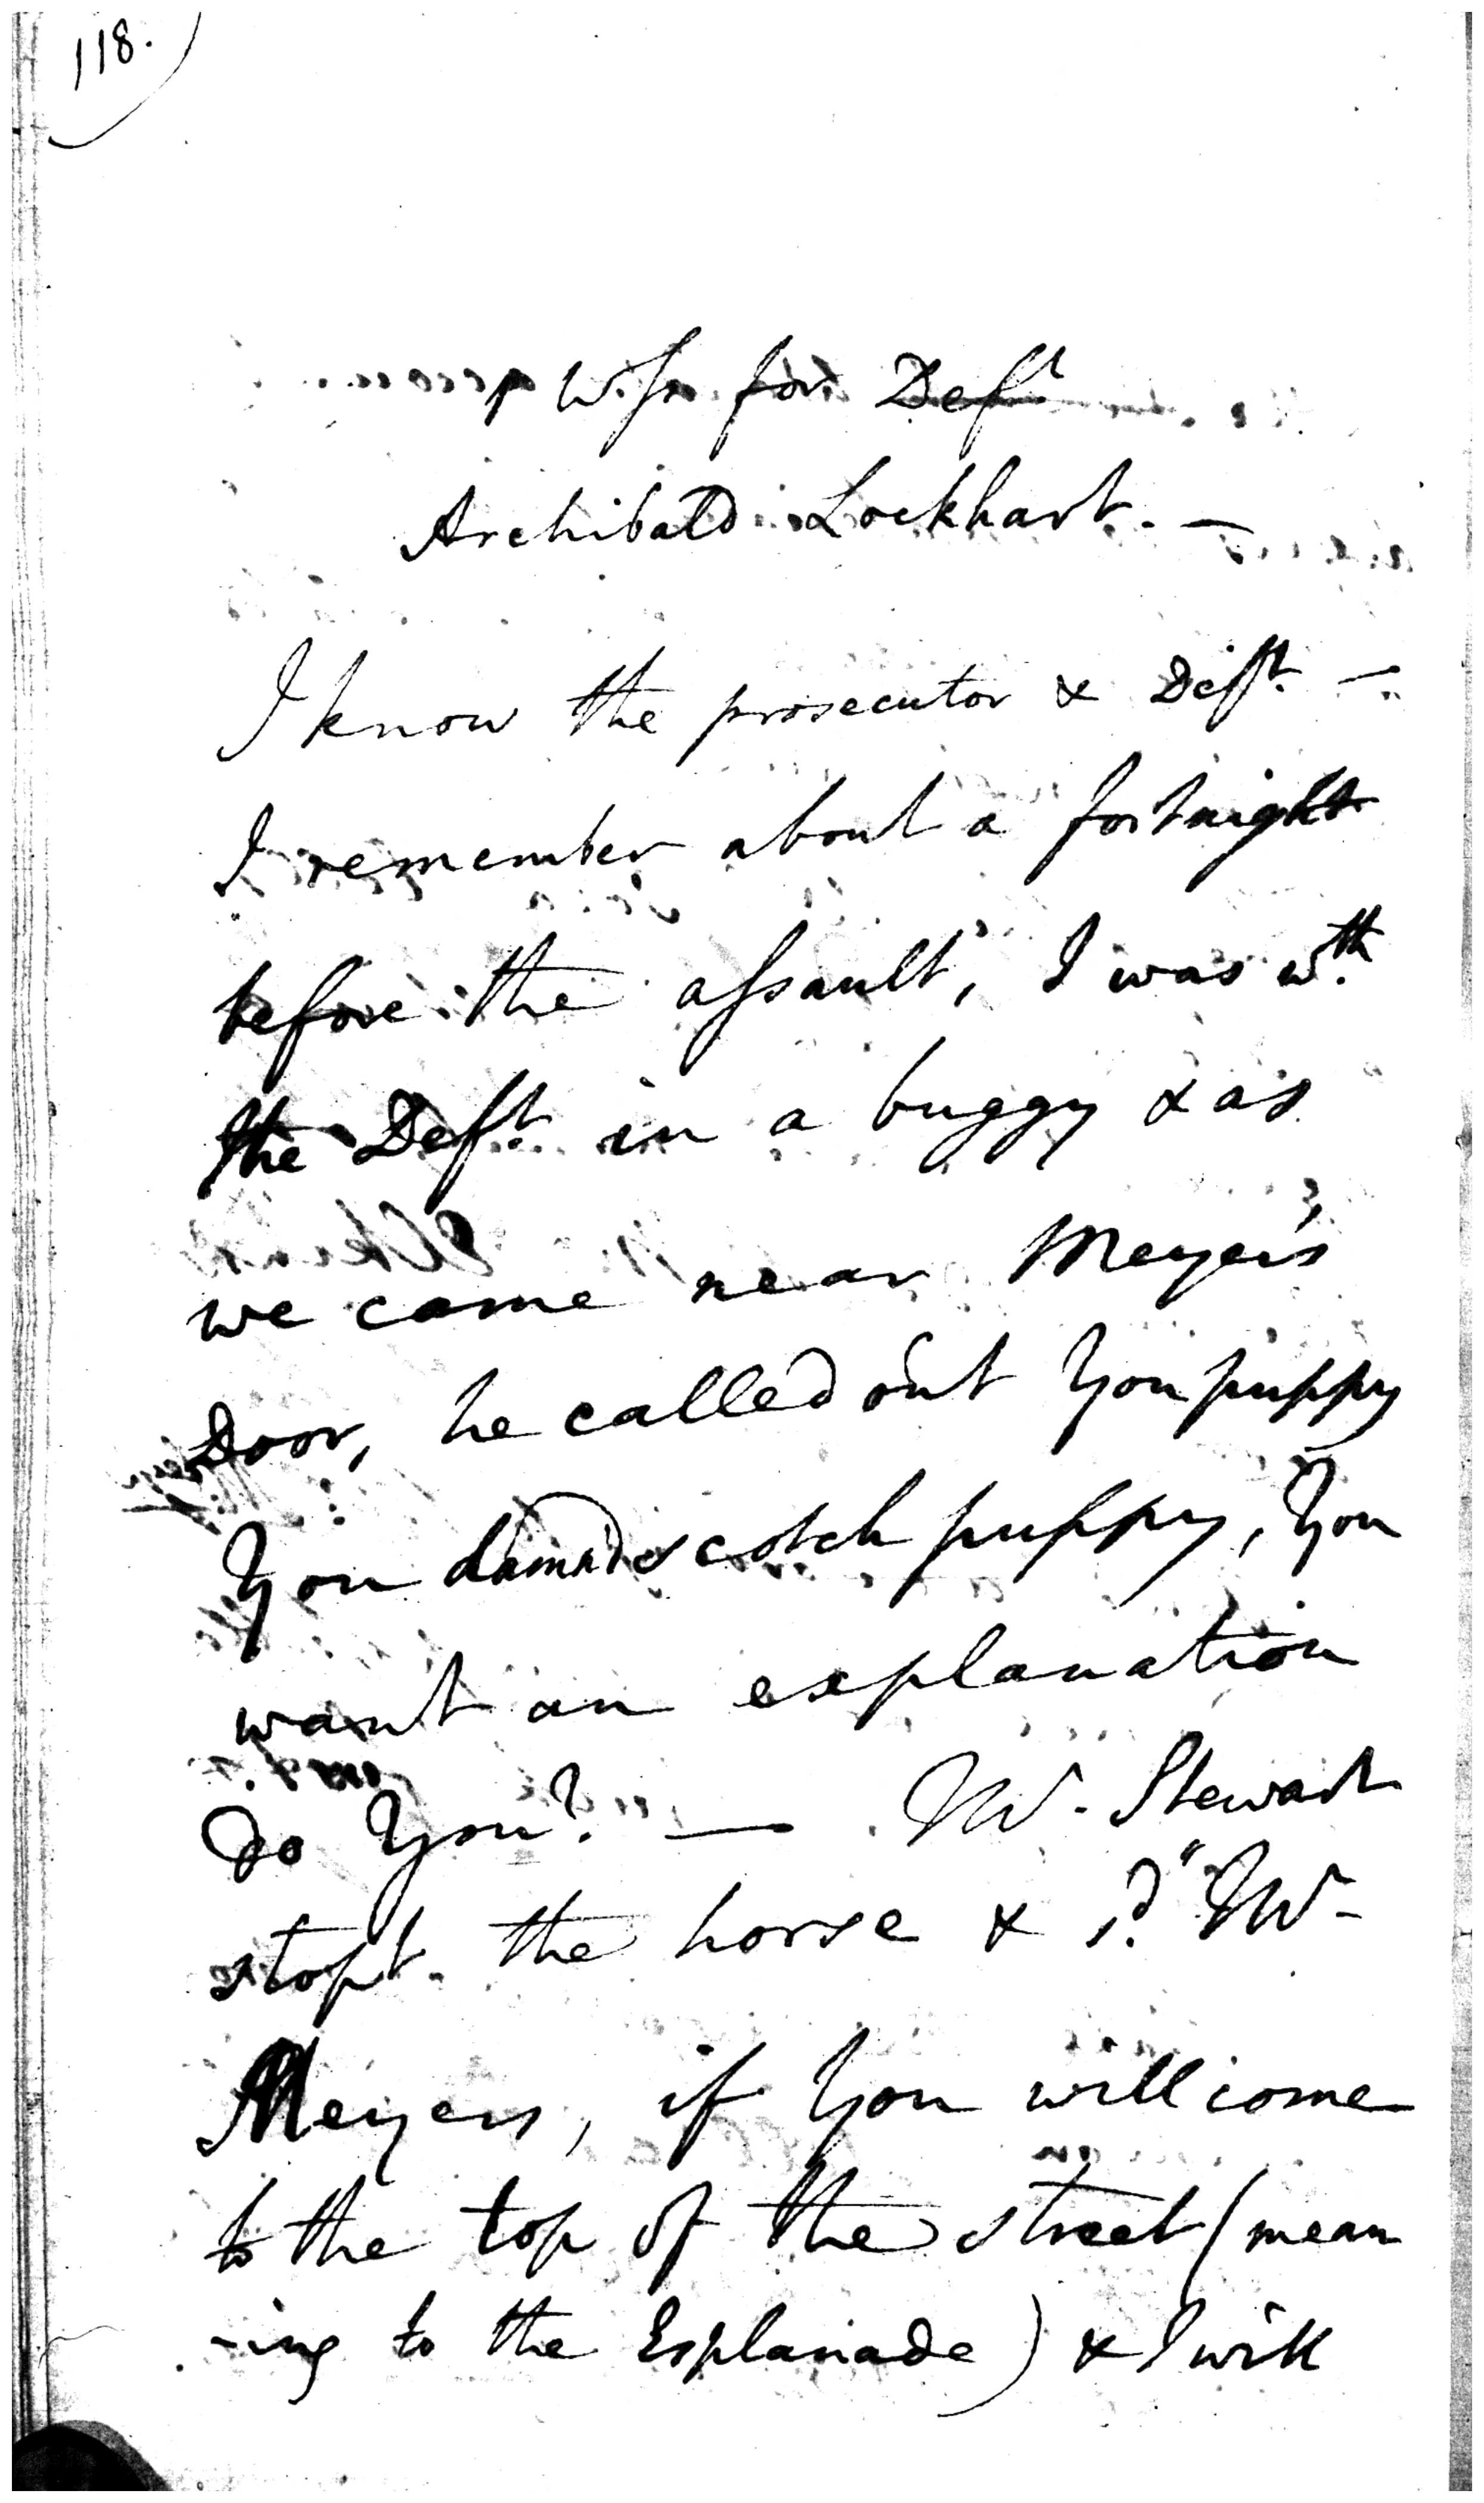 118.
Wss for Deft
Archibald Lockhart. —
I know the prosecutor & Deft. —
I remember about a fortnight
before the assault, I was wth.
the Deft. in a buggy & as
we came near Meyer's
Door, he called out You puppy
You damnd scotch puppy, You
want an explanation
do You? — Mr. Stewart
stopt the horse & sd. "Mr-
Meyers, if You will come
to the top of the street (mean
-ing to the Esplanade) & I will